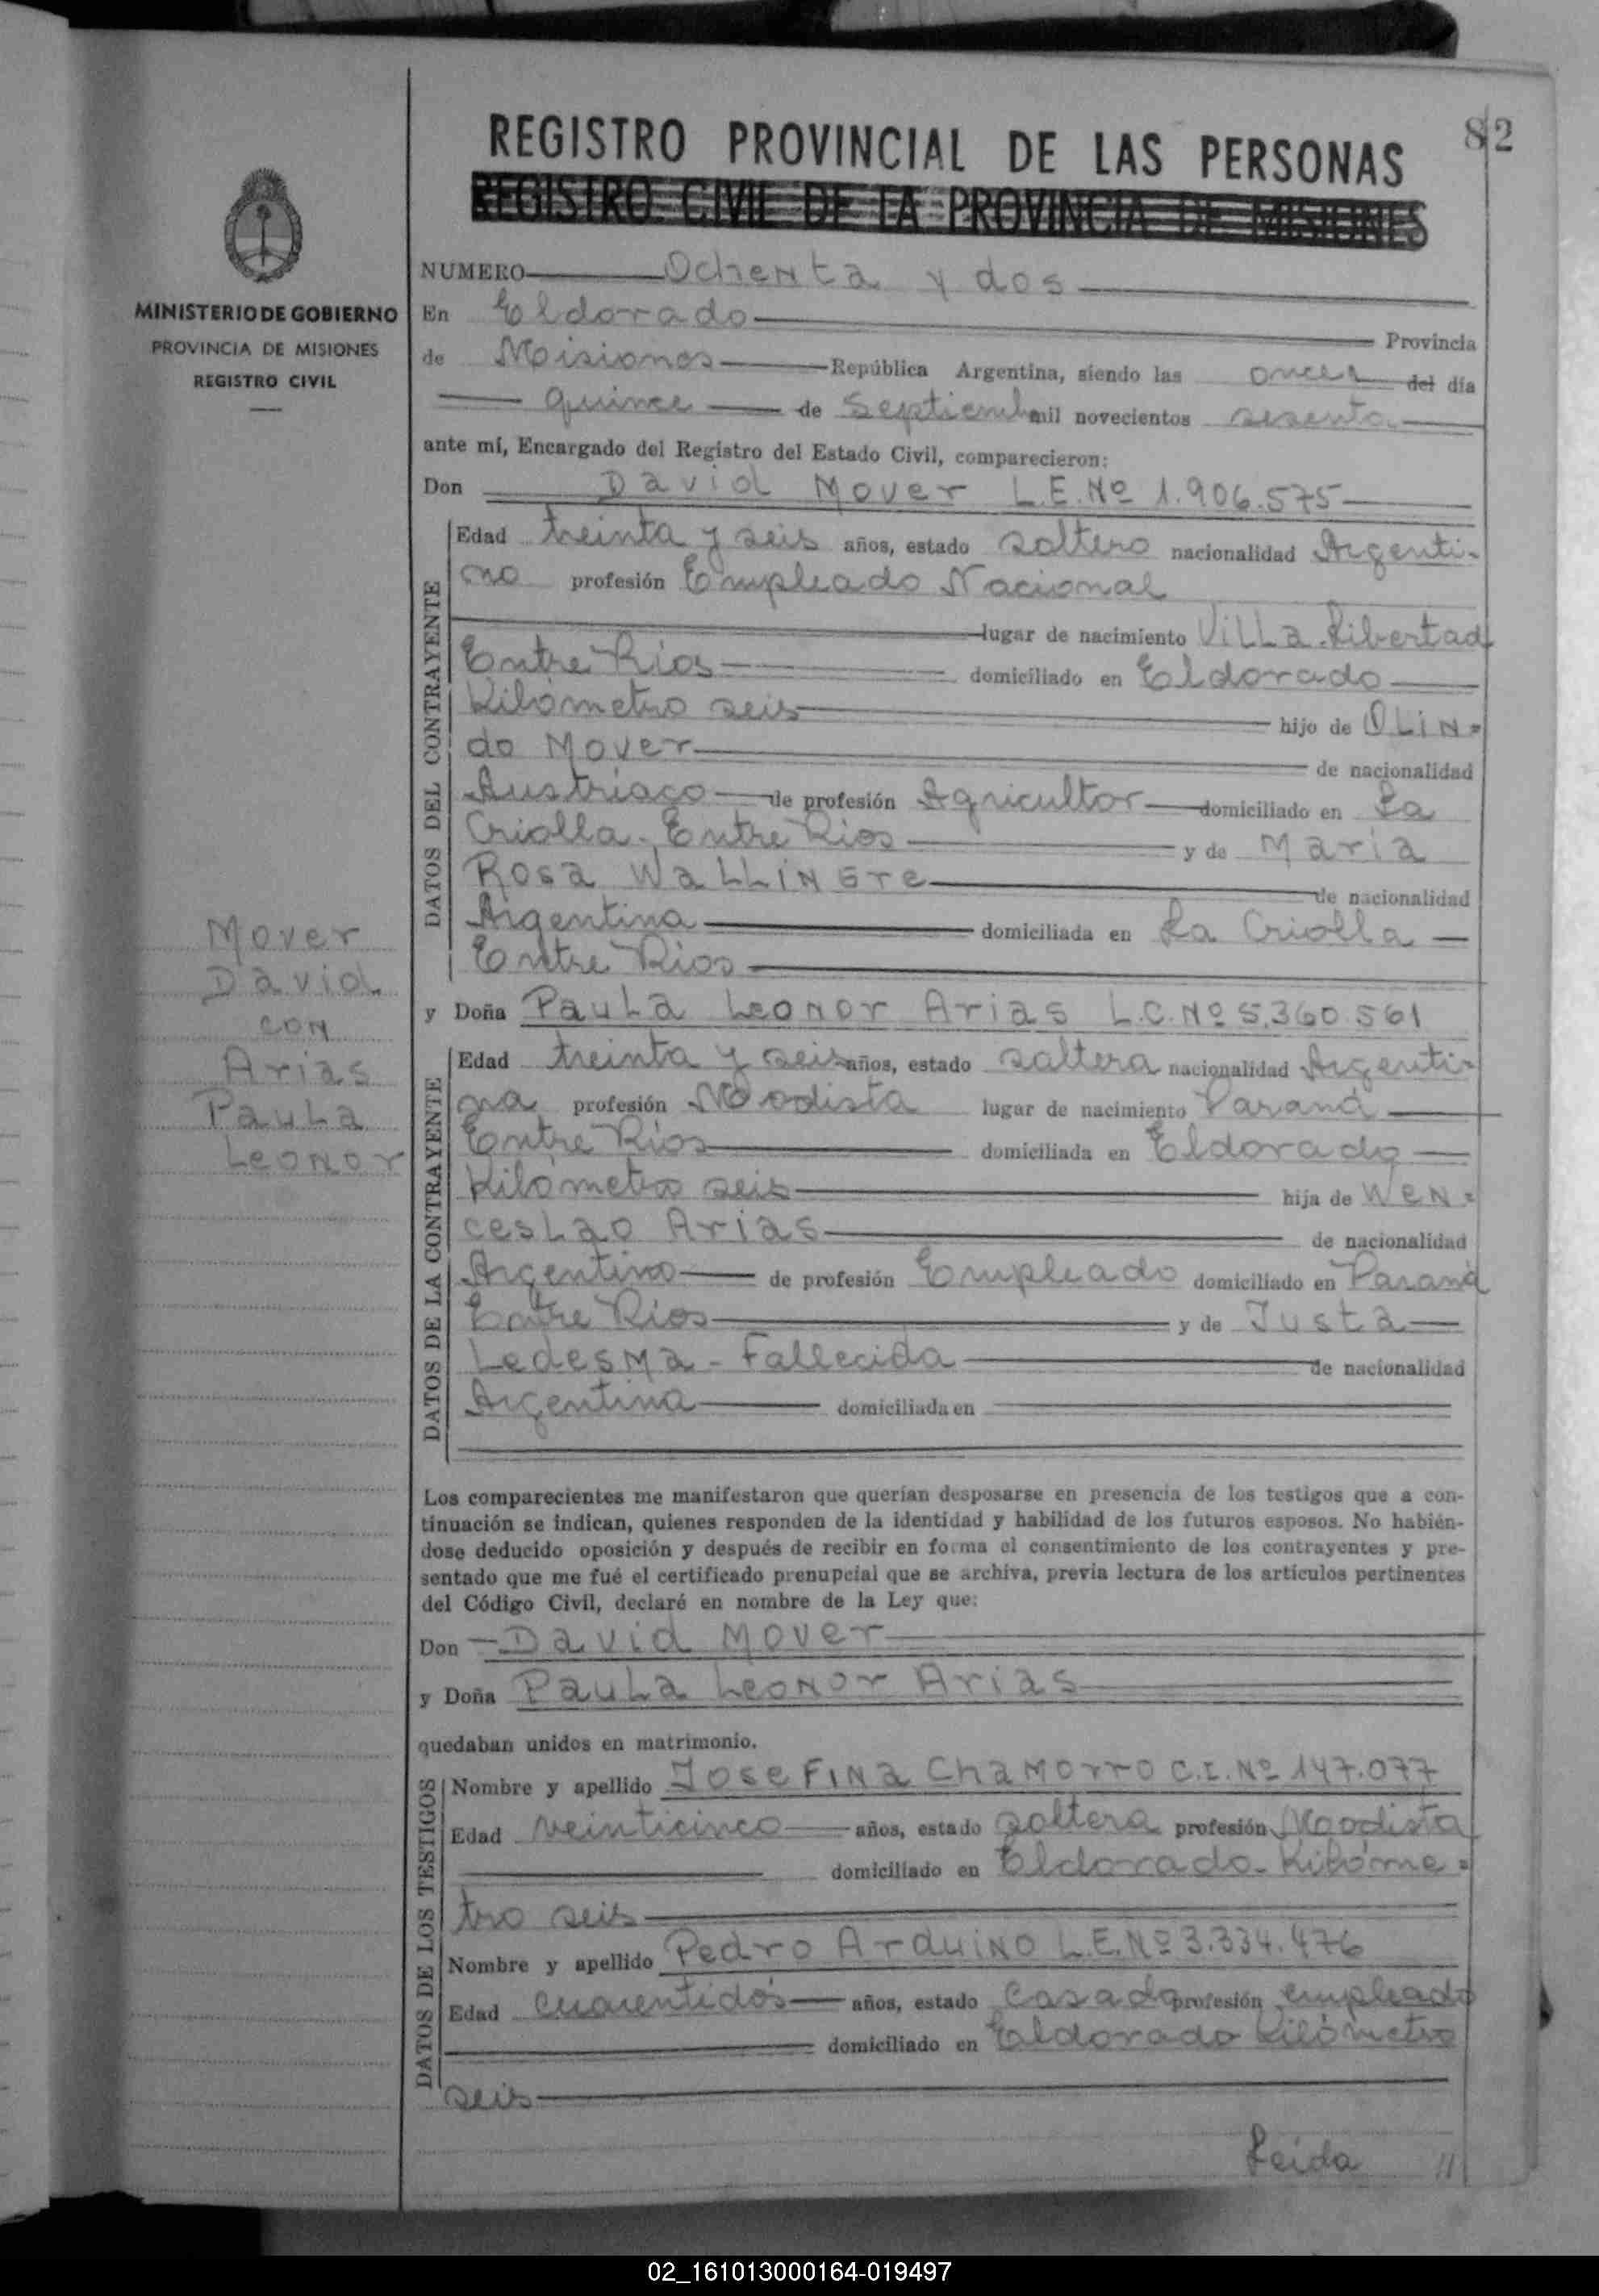 82
REGISTRO PROVINCIAL DE LAS PERSONAS
REGISTRO CIVIL DE LA PROVINCIA DE MISIONES
MINISTERIO DE GOBIERNO
PROVINCIA DE MISIONES
REGISTRO CIVIL
NUMERO Ochenta y dos
En Eldorado Provincia
de Misiones República Argentina, siendo las once del día
quince de Septiembre mil novecientos sesenta
ante mí, Encargado del Registro del Estado Civil, comparecieron:
Don David Mover L.E. Nº 1.906.575
DATOS DEL CONTRAYENTE
Edad treinta y seis años, estado soltero nacionalidad Argenti-
no profesión Empleado Nacional
lugar de nacimiento Villa Libertad
Entre Ríos domiciliado en Eldorado
Kilómetro seis hijo de Olin=
do Mover de nacionalidad
Austriaco de profesión Agricultor domiciliado en La
Criolla - Entre Ríos y de María
Rosa Wallingre de nacionalidad
Argentina domiciliada en La Criolla
Entre Ríos
Mover
David
con
Arias
Paula
Leonor
y Doña Paula Leonor Arias L.C. Nº 5.360.561
DATOS DE LA CONTRAYENTE
Edad treinta y seis años, estado soltera nacionalidad Argenti-
na profesión Modista lugar de nacimiento Paraná
Entre Ríos domiciliada en Eldorado
Kilómetro seis hija de Wen=
ceslao Arias de nacionalidad
Argentino de profesión Empleado domiciliado en Paraná
Entre Ríos y de Justa
Ledesma - Fallecida de nacionalidad
Argentina domiciliada en
Los comparecientes me manifestaron que querían desposarse en presencia de los testigos que a con-
tinuación se indican, quienes responden de la identidad y habilidad de los futuros esposos. No habién-
dose deducido oposición y después de recibir en forma el consentimiento de los contrayentes y pre-
sentado que me fué el certificado prenupcial que se archiva, previa lectura de los artículos pertinentes
del Código Civil, declaré en nombre de la Ley que:
Don David Mover
y Doña Paula Leonor Arias
quedaban unidos en matrimonio.
DATOS DE LOS TESTIGOS
Nombre y apellido Josefina Chamorro C.I. Nº 147.077
Edad veinticinco años, estado soltera profesión Modista
domiciliado en Eldorado - Kilóme=
tro seis
Nombre y apellido Pedro Arduino L.E. Nº 3.334.476
Edad cuarentidós años, estado casado profesión empleado
domiciliado en Eldorado Kilómetro
seis
Leída //
02_161013000164-019497